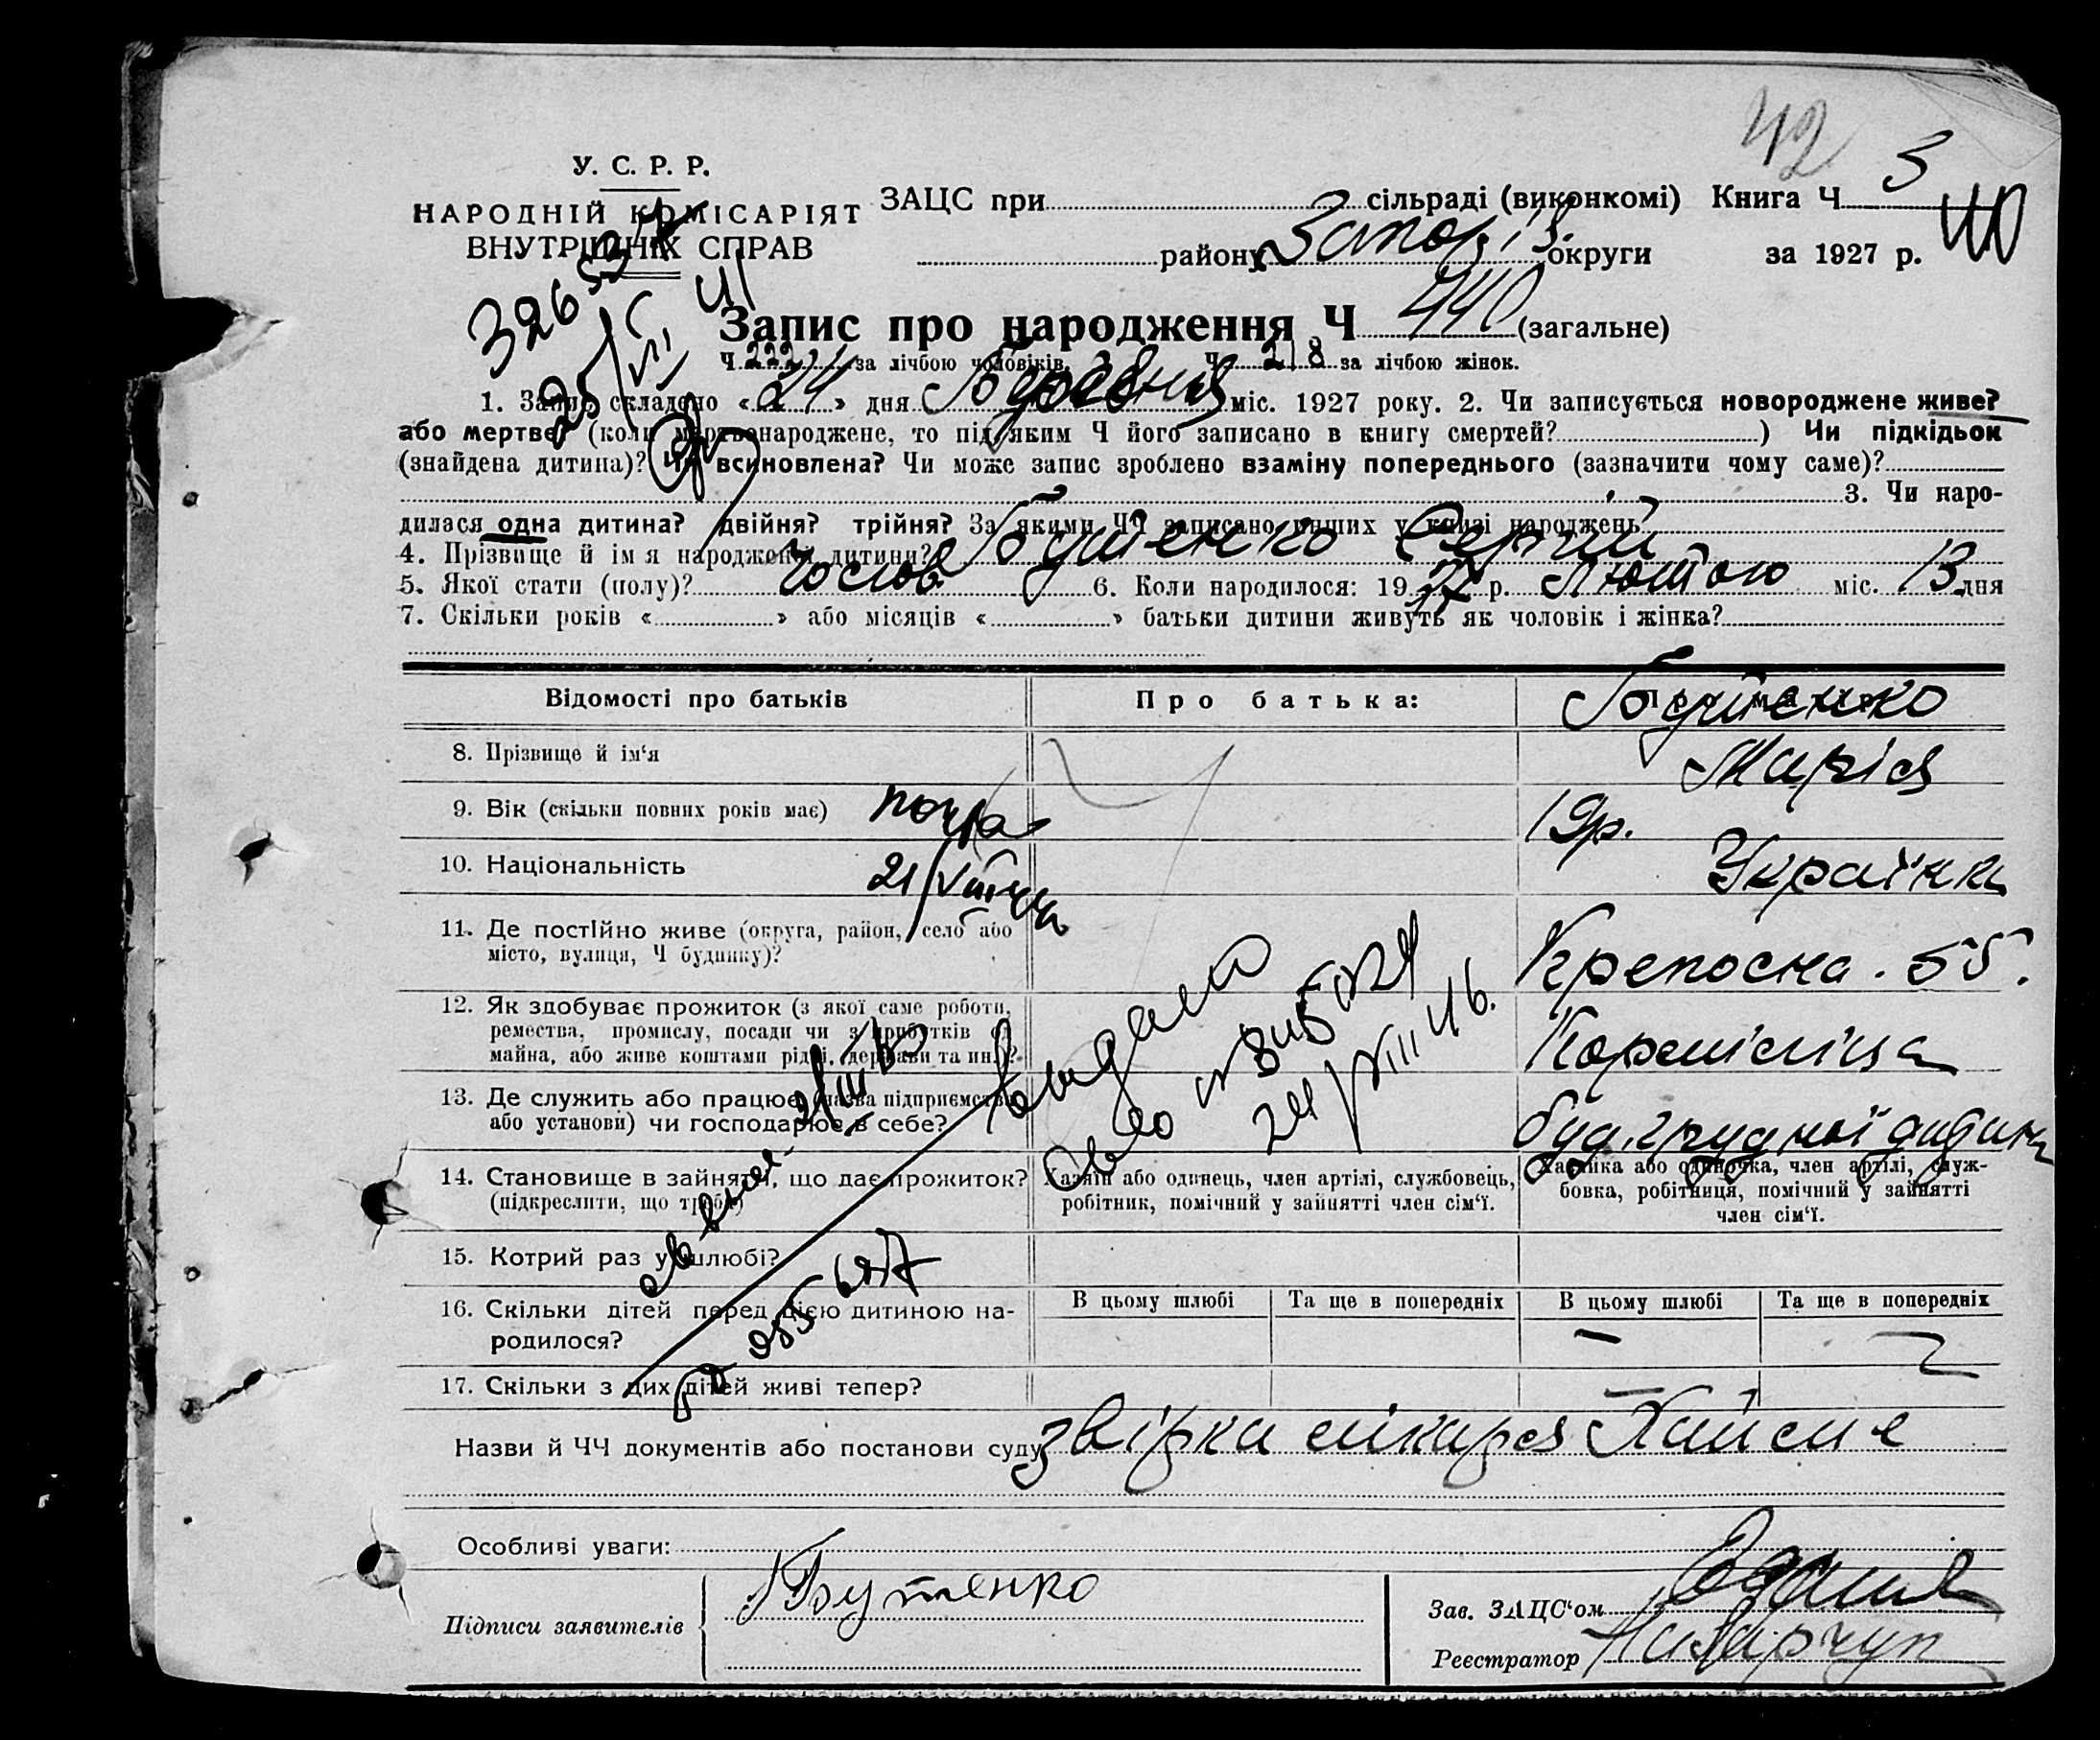 42
У. С. Р. Р.
НАРОДНІЙ КОМІСАРІЯТ
ВНУТРІШНІХ СПРАВ
ЗАЦС при сільраді (виконкомі) Книга Ч 3
району Запоріз. округи за 1927 р.
Запис про народження Ч 440 (загальне)
Ч 222 за лічбою чоловіків. Ч 218 за лічбою жінок.
1. Запис складено « 24 » дня міс. 1927 року. 2. Чи записується новороджене живе?
або мертве? (коли мертвонароджене, то під яким Ч його записано в книгу смертей? ) Чи підкідьок
(знайдена дитина)? Чи всиновлена? Чи може запис зроблено взаміну попереднього (зазначити чому саме)?
3. Чи наро-
дилася одна дитина? двійня? трійня? За якими ЧЧ записано инших у книзі народжень?
4. Прізвище й ім я народженої дитини? Бутенко Сергій
5. Якої стати (полу)? чолов 6. Коли народилося: 19 27 р. Лютого міс. 13 дня
7. Скільки років « » або місяців « » батьки дитини живуть як чоловік і жінка?
Відомості про батьків Про батька:
Бутенко
8. Прізвище й ім‘я Марія
9. Вік (скільки повних років має) 19р.
10. Національність Українка
11. Де постійно живе (округа, район, село або
місто, вулиця, Ч будинку)? Крепосна. 55.
12. Як здобуває прожиток (з якої саме роботи,
ремества, промислу, посади чи з прибутків з
майна, або живе коштами рідні, держави та ин.)? Кормілиця
13. Де служить або працює (назва підприємства
або установи) чи господарює в себе? буд. грудної дитини
14. Становище в зайнятті, що дає прожиток?
(підкреслити, що треба)
Хазяїн або одинець, член артілі, службовець,
робітник, помічний у зайнятті член сім‘ї.
Хазяйка або одиночка, член артілі, служ-
бовка, робітниця, помічний у зайнятті
член сім‘ї.
15. Котрий раз у шлюбі?
16. Скільки дітей перед цією дитиною на-
родилося?
В цьому шлюбі Та ще в попередніх В цьому шлюбі Та ще в попередніх
17. Скільки з цих дітей живі тепер?
Назви й ЧЧ документів або постанови суду звірка лікаря
Особливі уваги:
Підписи заявителів Бутенко
Зав. ЗАЦС‘ом
Реєстратор